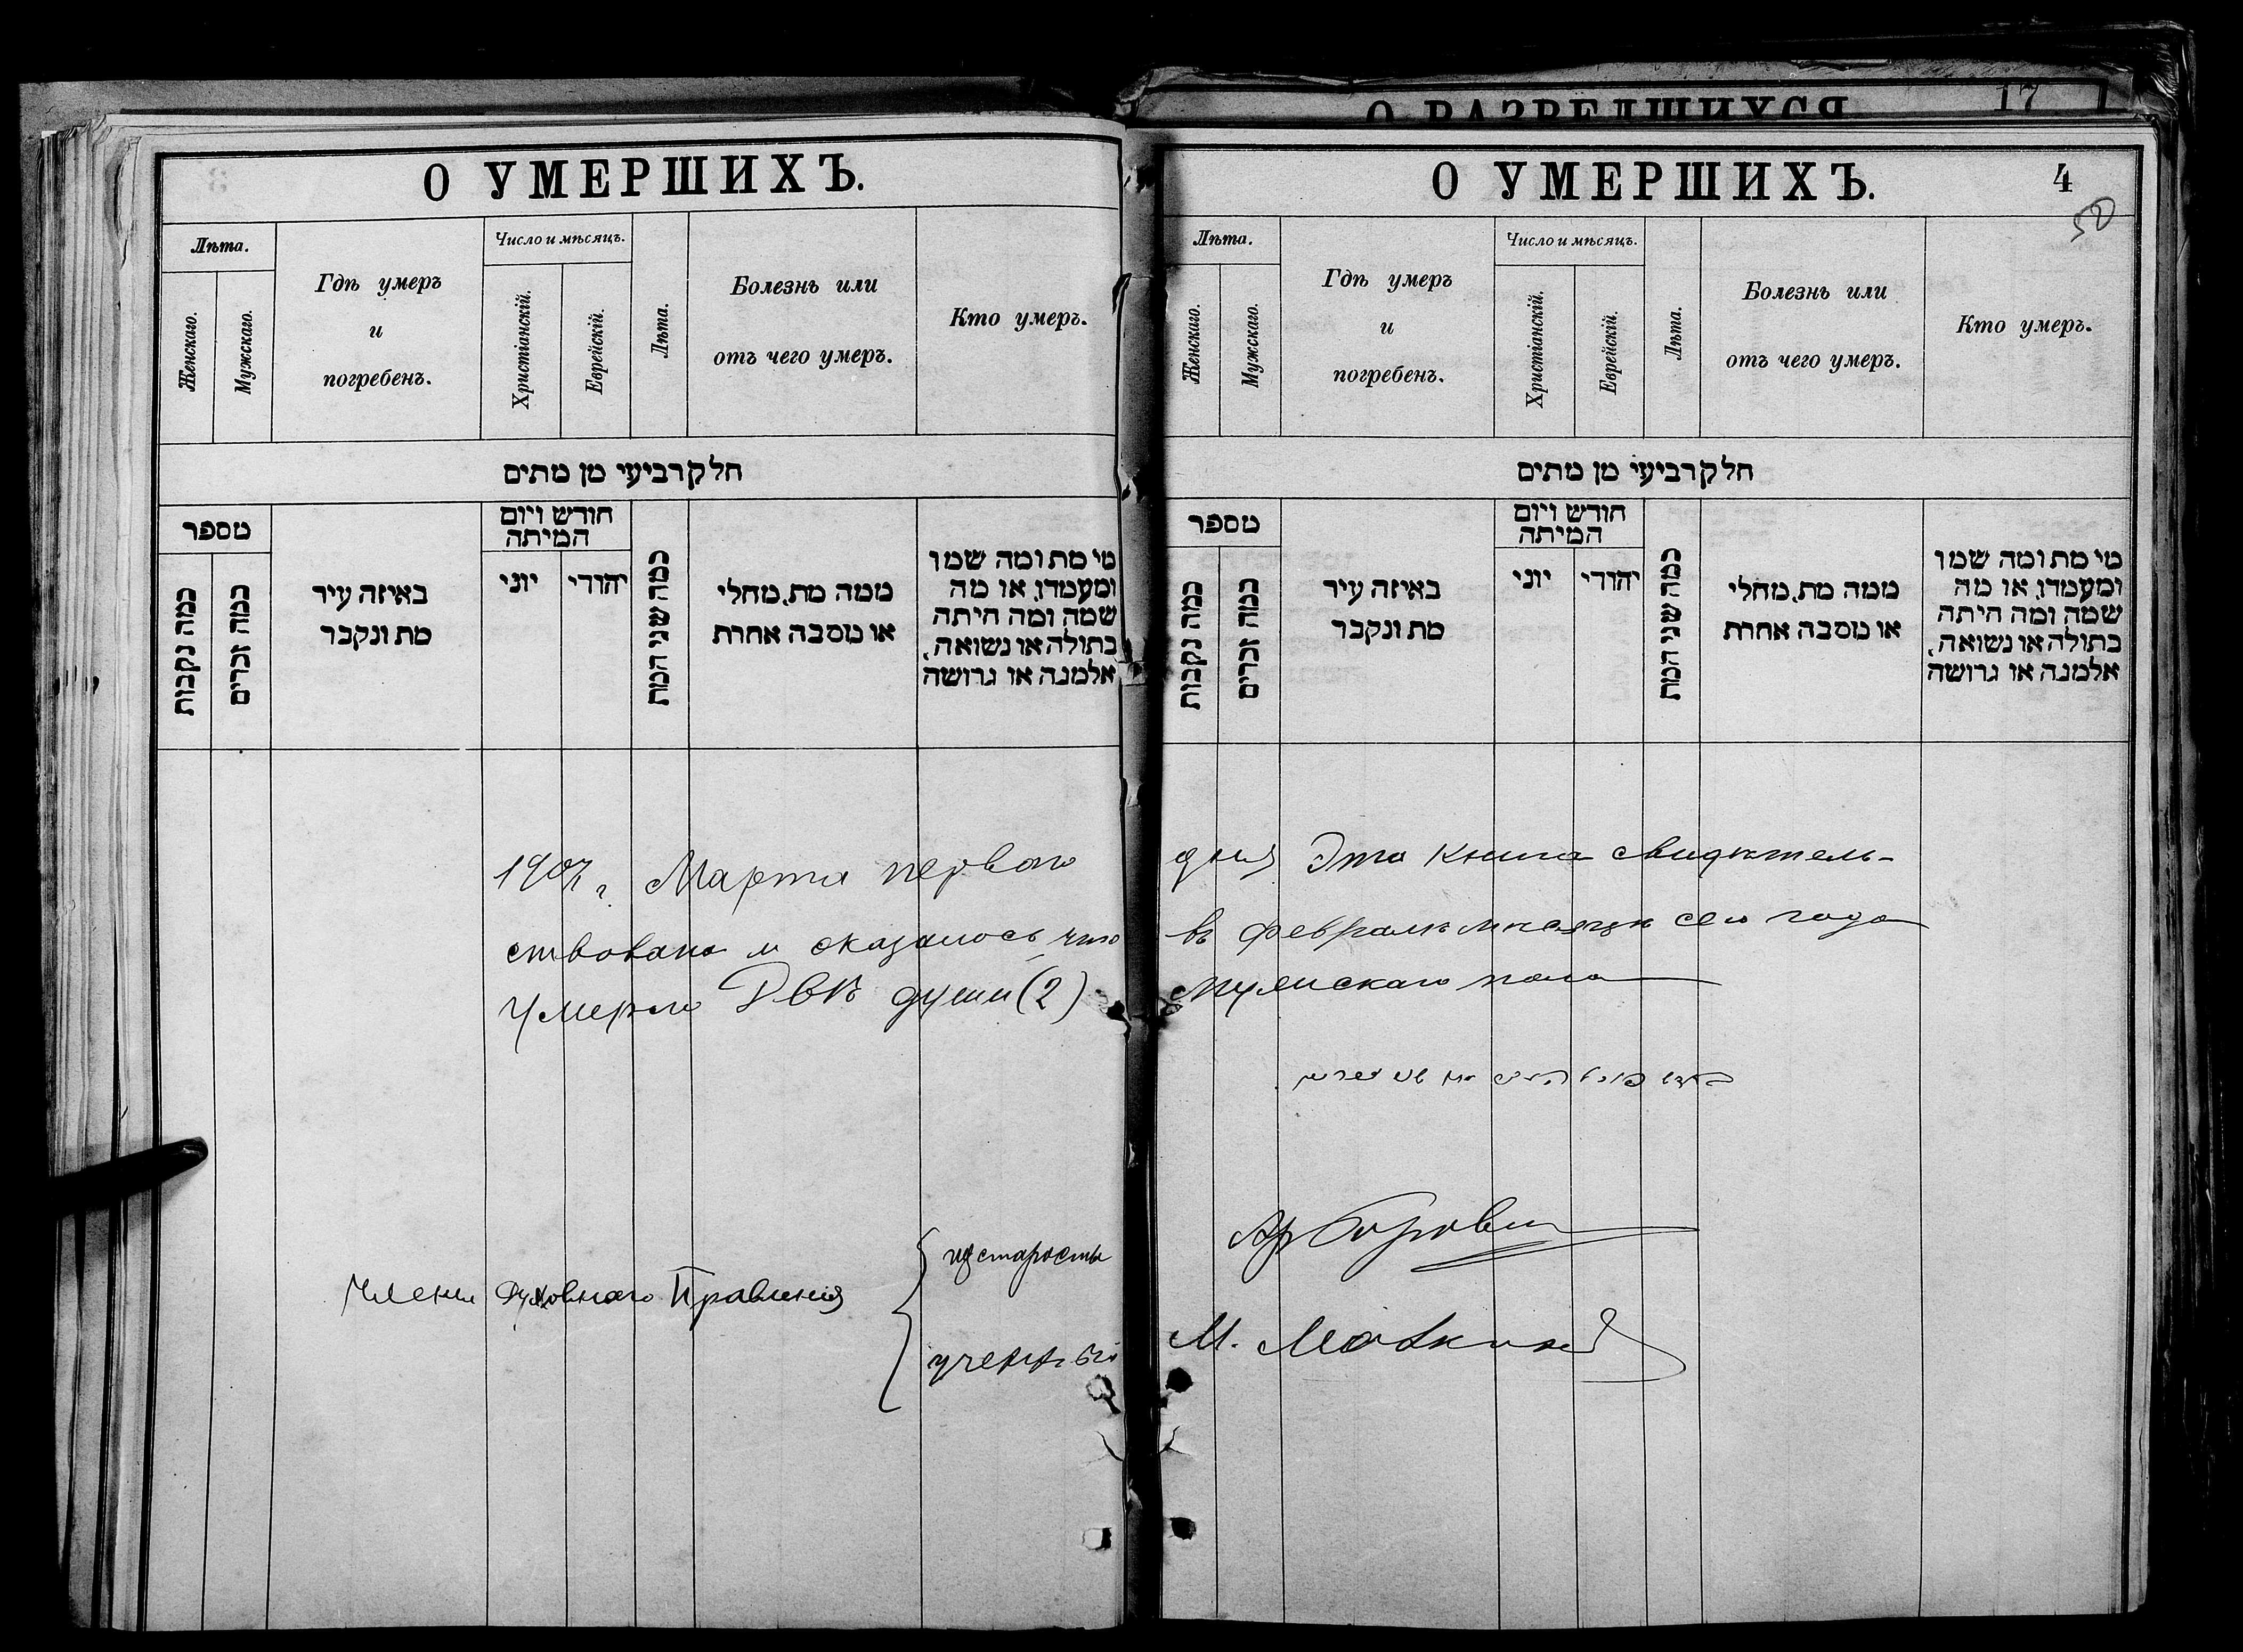 О РАЗВЕДШИХСЯ 17
О УМЕРШИХЪ.
Лѣта.
Женскаго.
Мужскаго.
Гдѣ умеръ
и
погребенъ.
Число и мѣсяцъ.
Христіанскій.
Еврейскій.
Лѣта.
Болезнь или
отъ чего умеръ.
Кто умеръ.
חלק רביעי מן מתים
מספר
כמה נקבות
כמה זכרים
באיזה עיר
מת ונקבר
חודש ויום
המיתה
יוני
יהודי
כמה שני המת
ממה מת, מחלי
או מסבה אחרת
מי מת ומה שמו
ומעמדו, או מה
שמה ומה היתה
בתולה או נשואה,
אלמנה או גרושה
О УМЕРШИХЪ.
4
50
Лѣта.
Женскаго.
Мужскаго.
Гдѣ умеръ
и
погребенъ.
Число и мѣсяцъ.
Христіанскій.
Еврейскій.
Лѣта.
Болезнь или
отъ чего умеръ.
Кто умеръ.
חלק רביעי מן מתים
מספר
כמה נקבות
כמה זכרים
באיזה עיר
מת ונקבר
חודש ויום
המיתה
יוני
יהודי
כמה שני המת
ממה מת, מחלי
או מסבה אחרת
מי מת ומה שמו
ומעמדו, או מה
שמה ומה היתה
בתולה או נשואה,
אלמנה או גרושה
1907 г. Марта перваго дня Эта книга свидѣтель-
ствована и оказалось, что въ Февралѣ мѣсяцѣ сего года
умерло Двѣ души (2) мужскаго пола
Члены Духовнаго Правленія
старосты
ученый М.